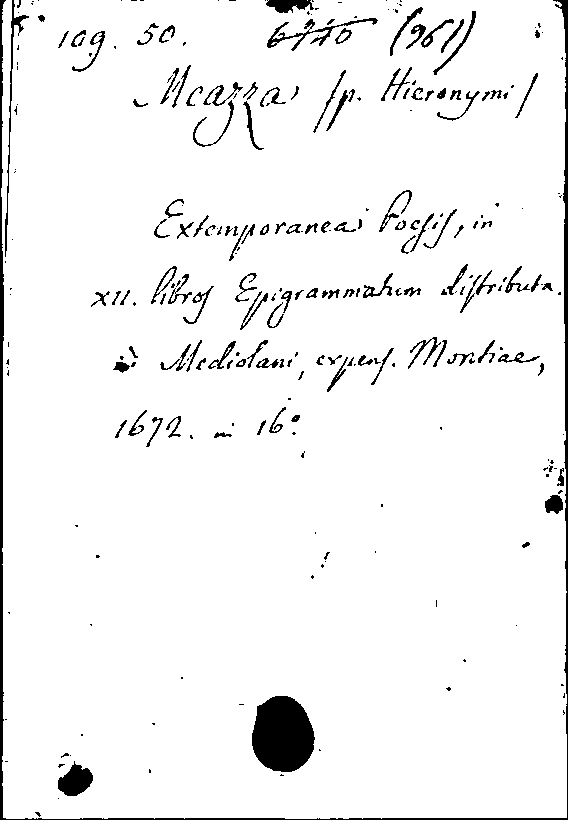 109. 50. 6740 (961)
Meazza /p. Hieronymi/
Extemporanea Poesis, in
XII. libros Epigrammatum distributa.
Mediolani, expens. Montiae,
1672. in 16°